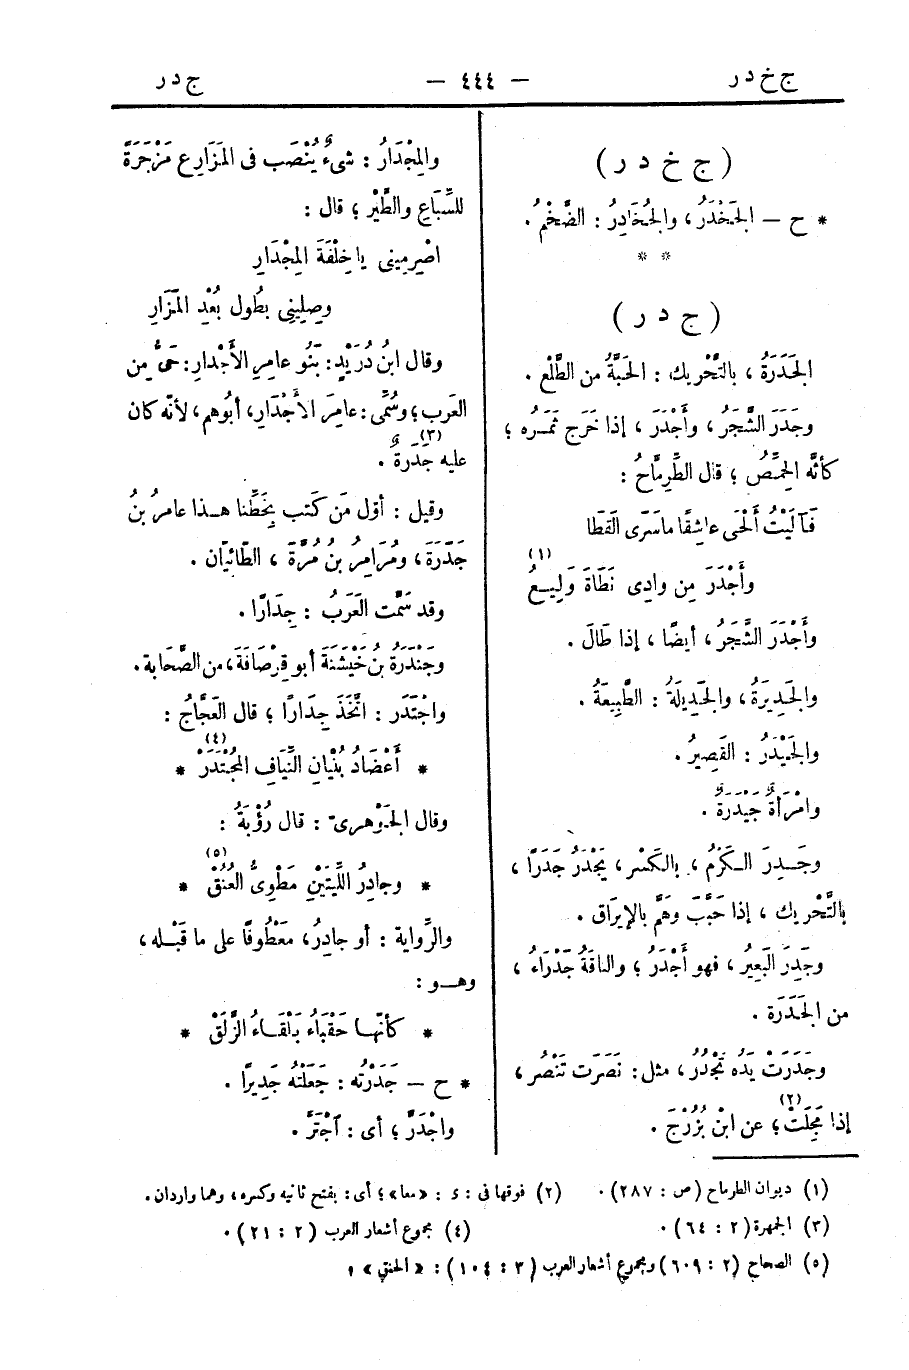 ج خ د ر — ٤٤٤ — ج د ر
( ج خ د ر )
* ح – الجَخْدَرُ، والجُخَادِرُ : الضَّخْمُ .
* *
( ج د ر )
الجَدَرَةُ ، بالتَّحْرِيك : الحَبَّةُ من الطَّلْع .
وجَدَرَ الشَّجَرُ، وأَجْدَرَ ، إذا خَرَج ثَمَـرُه ؛
كأنَّه الحِمَّصُ ؛ قال الطِّرِمَّاحُ :
فَآلَيْتُ أَلْحَى عاشِقًا ما سَرَى القَطَا
وأَجْدَرَ مِن وادِى نَطَاةَ وَلِيـعُ (١)
وأَجْدَرَ الشَّجَرُ ، أيضًا ، إذا طَالَ .
والجَدِيرَةُ ، والجَدِيلَةُ : الطَّبِيعَةُ .
والجَيْدَرُ : القَصِيرُ .
وامْرَأةٌ جَيْدَرَةٌ .
وجَـدِرَ الـكَرْمُ ، بالكَسْر ، يَجْدَرُ جَدَرًا ،
بالتَّحْرِيك ، إذا حَبَّبَ وَهَمَّ بالإيرَاق .
وجَدِرَ البَعِيرُ ، فهو أَجْدَرُ ؛ والناقةُ جَدْرَاء ،
من الجَدَرَة .
وجَدَرَتْ يَدُه تَجْدُرُ ، مثل : نَصَرَت تَنْصُر ،
إذا مَجِلَتْ (٢) ؛ عن ابْنِ بُزُرْجَ .
والمِجْدَارُ : شىءٌ يُنْصَب فى المَزَارِع مَزْجَرَةً
للسِّبَاعِ والطَّيْر ؛ قال :
اصْرِمينى يا خِلْقَةَ المِجْدَارِ
وصِلِينِى بطُول بُعْدِ المَزَارِ
وقال ابنُ دُرَيْدٍ : بَنُو عامِرِ الأَجْدارِ : حَىٌّ مِن
العَرب ؛ وسُمِّى : عامِرَ الأَجْدَارِ ، أبُوهم ، لأنّه كان
عليه جَدَرةٌ (٣) .
وقيل : أوّل مَن كَتَب بِخَطِّنا هـذا عامرُ بنُ
جَدَرَةَ ، ومُرَامِرُ بنُ مُرَّةَ ، الطّائيّان .
وقد سَمَّت العَرَبُ : جِدَارًا .
وجَنْدَرَةُ بنُ خَيْشَنَةَ أبو قِرْصَافَةَ ، من الصَّحابة .
واجْتَدَر : اتَّخَذَ جِدَارًا ؛ قال العَجَّاجُ :
* أَعْضَادُ بُنْيانِ النِّيَافِ المُجْتَدَرْ (٤) *
وقال الجَوْهرىّ : قال رُؤْبَةُ :
* وجادِرُ اللِّيتَيْنِ مَطْوِىُّ العُنُقْ (٥) *
والرِّواية : أو جادِرُ ، مَعْطُوفًا على ما قَبْله ،
وهـو :
* كأنّهـا حَقْبَاءُ بَلْقَـاءُ الزَّلَقْ *
* ح – جَدَرْتُه : جَعَلْتُه جَدِيرًا .
واجْدَرَّ ؛ أى : اجْتَرَّ .
(١) ديوان الطرماح (ص : ٢٨٧) . (٢) فوقها فى : ء : «معا» ؛ أى : بفتح ثانيه وكسره ، وهما واردان .
(٣) الجمهرة (٢ : ٦٤) . (٤) مجموع أشعار العرب (٢ : ٢١) .
(٥) الصحاح (٢ : ٦٠٩) ومجموع أشعار العرب (٣ : ١٠٤) : « الحنق » .